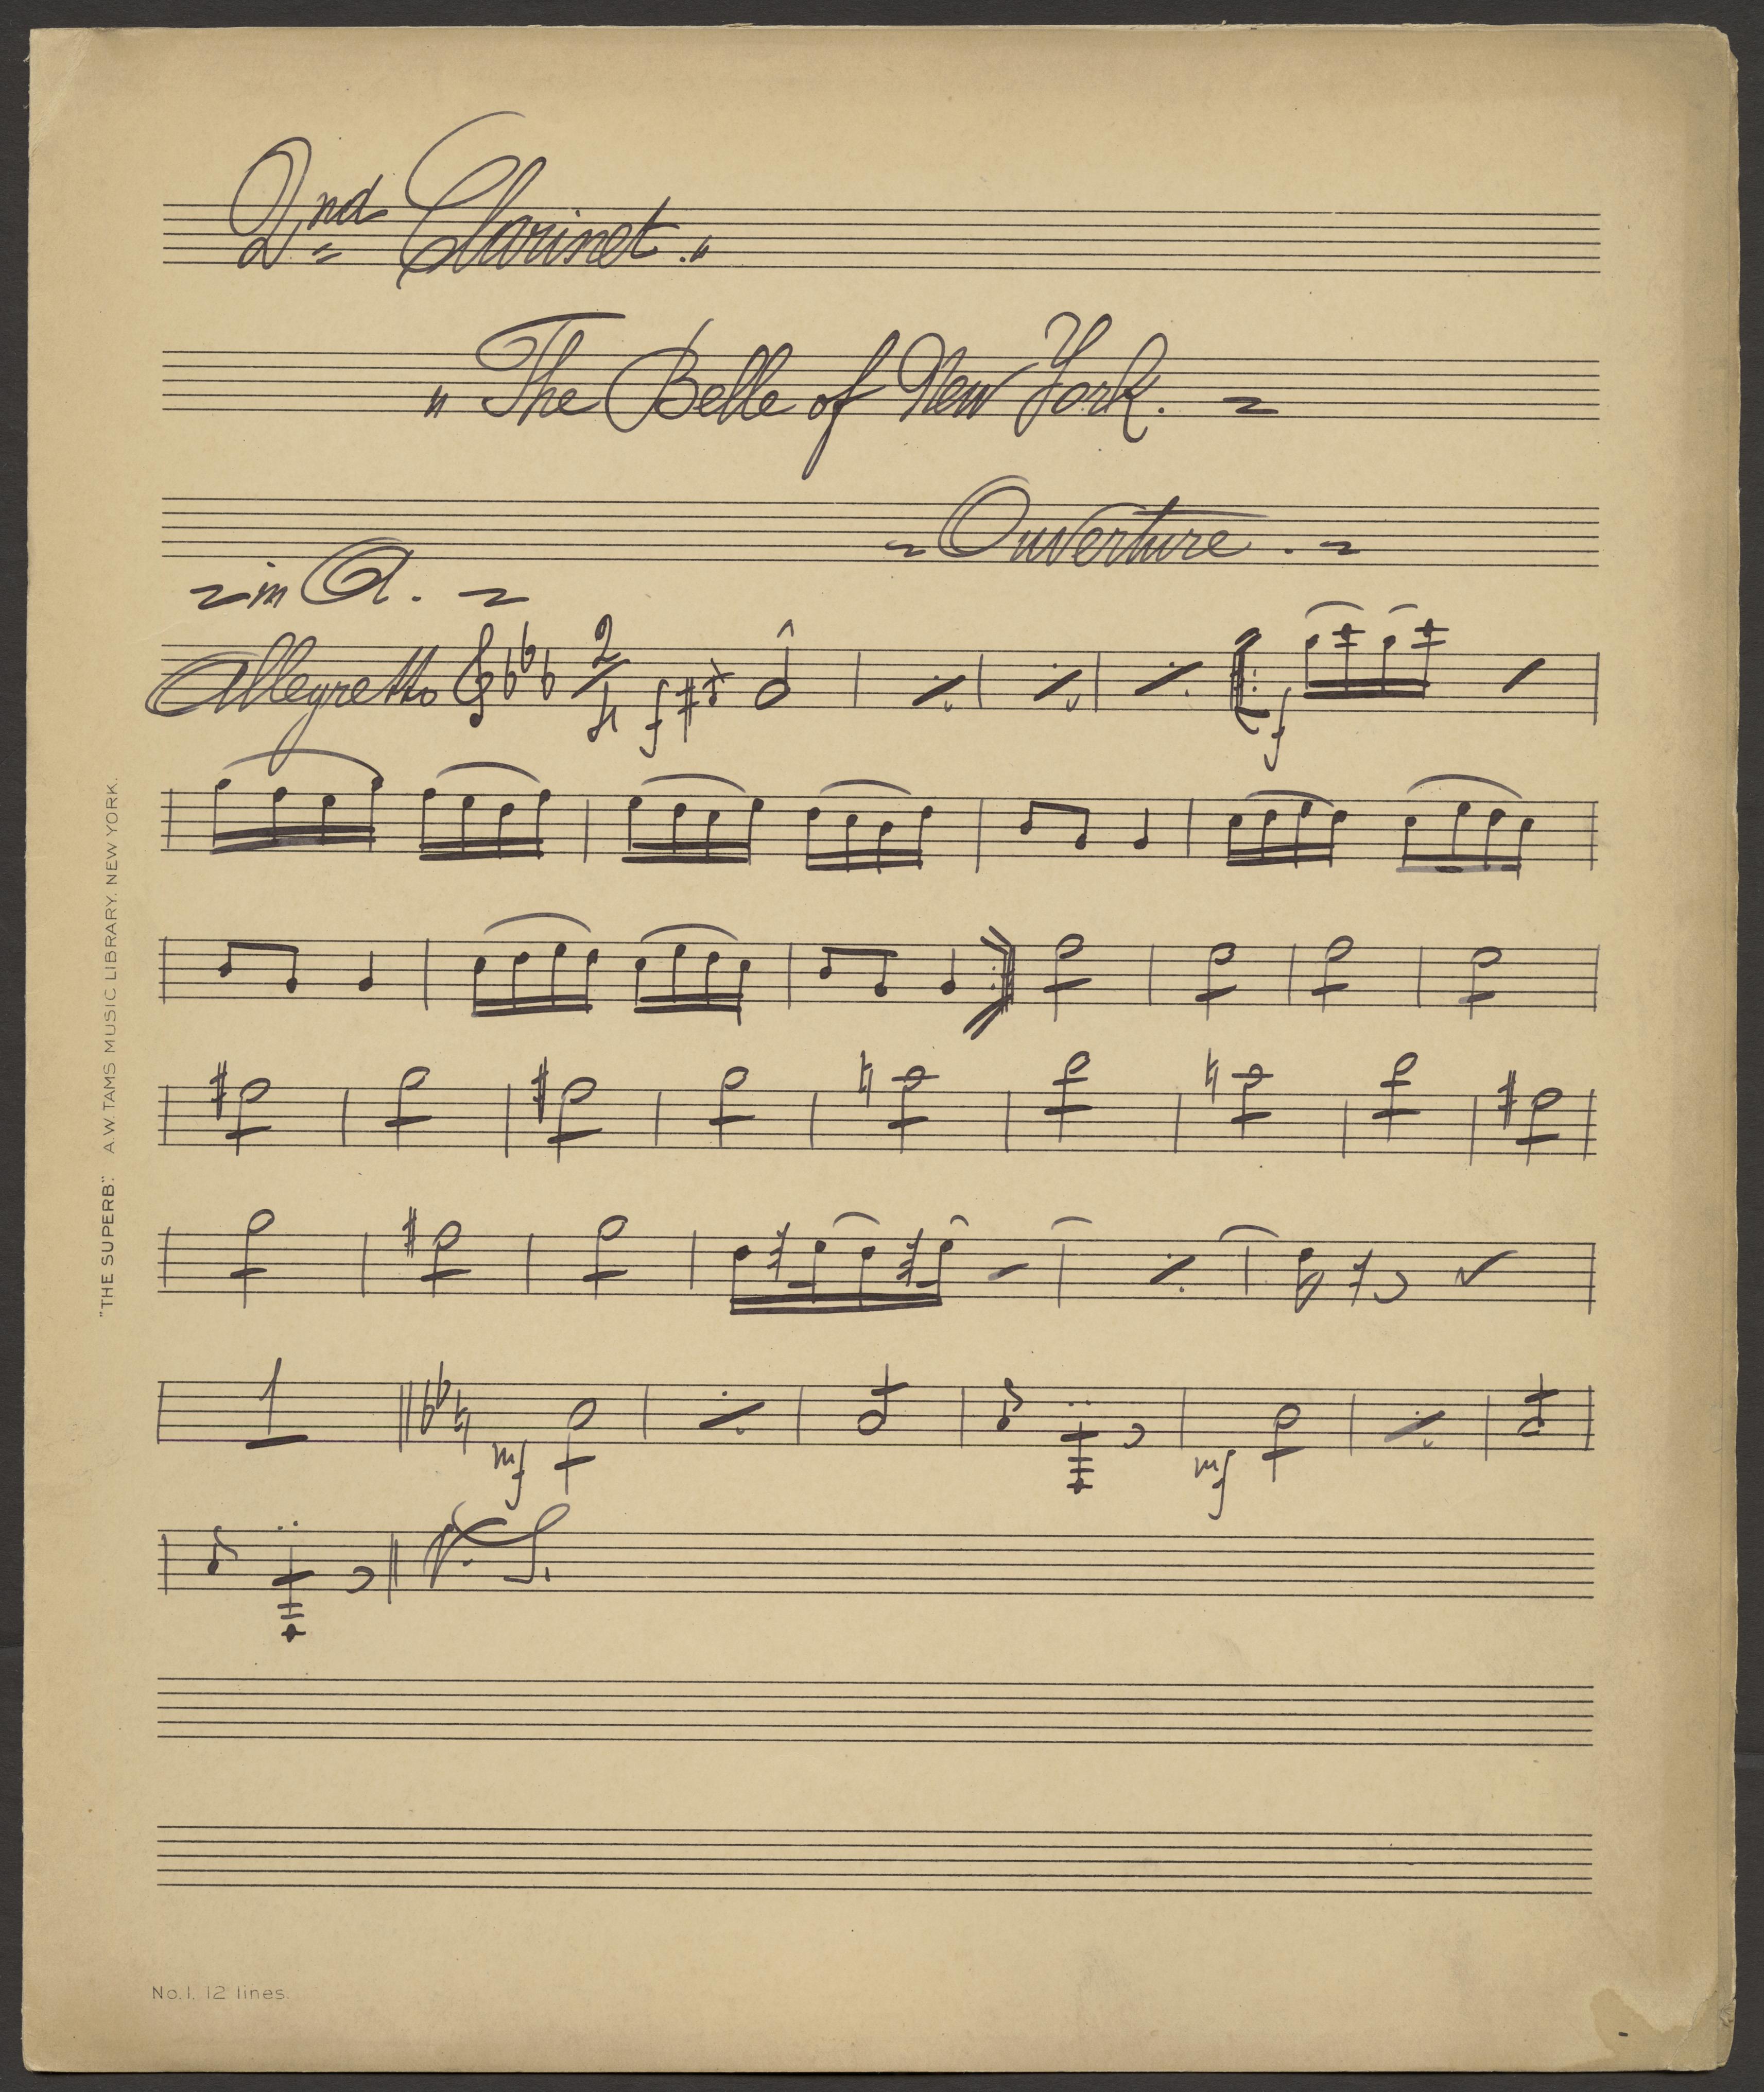 2nd Clarinet."
"The Belle of New York.
Ouverture.
in A.
Allegretto 2/4 f f
1 mf mf
V. S.
"THE SUPERB". A.W. TAMS MUSIC LIBRARY. NEW YORK.
No. 1. 12 lines.